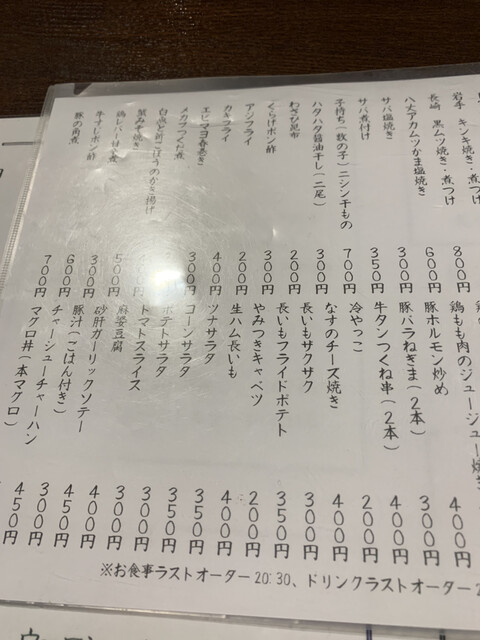 岩手 キンキ焼き・煮つけ
長崎 黒ムツ焼き・煮つけ
八丈アカムツかま塩焼き
サバ塩焼き
サバ煮付け
子持ち(数の子)ニシン干もの
ハタハタ醤油干し(二尾)
わさび昆布
くらげポン酢
アジフライ
カキフライ
エビマヨ春巻き
メカブつくだ煮
白魚と新ごぼうのかき揚げ
蟹みそ焼き
鶏レバー甘く煮
牛すじポン酢
豚の角煮
800円
600円
300円
350円
700円
300円
200円
300円
200円
400円
300円
500円
300円
600円
700円
鶏もも肉のジュージュー焼き
豚ホルモン炒め
豚バラねぎま(2本)
牛タンつくね串(2本)
冷やっこ
なすのチーズ焼き
長いもザクザク
長いもフライドポテト
やみつきキャベツ
生ハム長いも
ツナサラダ
コーンサラダ
ポテトサラダ
トマトスライス
麻婆豆腐
砂肝ガーリックソテー
豚汁(ごはん付き)
チャーシューチャーハン
マグロ丼(本マグロ)
400円
300円
400円
400円
200円
400円
300円
350円
200円
400円
350円
350円
300円
300円
400円
450円
300円
450円
※お食事ラストオーダー20:30、ドリンクラストオーダー